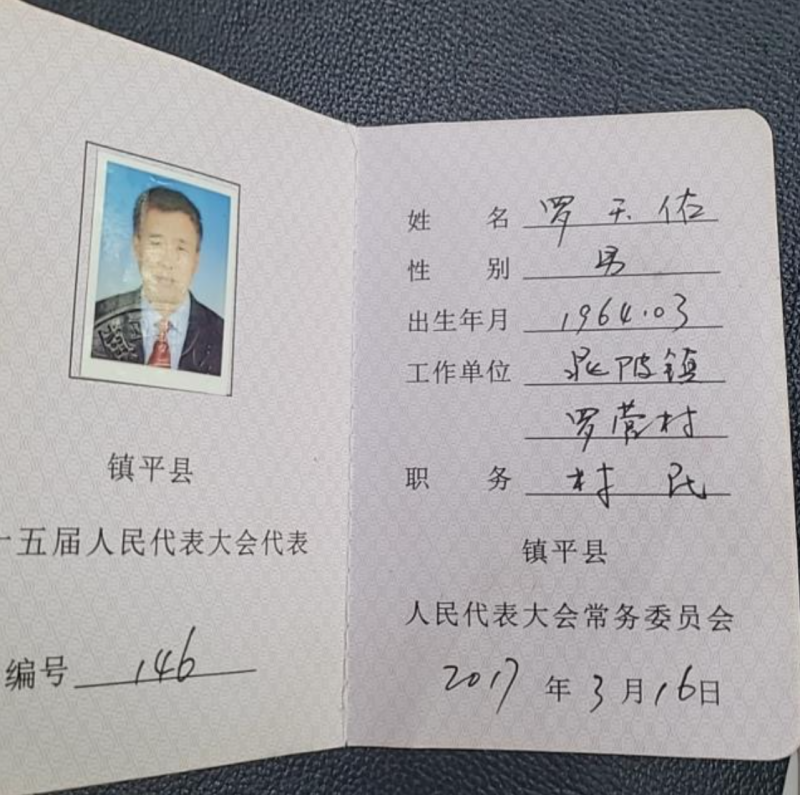 镇平县
十五届人民代表大会代表
编号 146
姓 名 罗天佑
性 别 男
出生年月 1964.03
工作单位 晁陂镇
罗营村
职 务 村民
镇平县
人民代表大会常务委员会
2017年3月16日